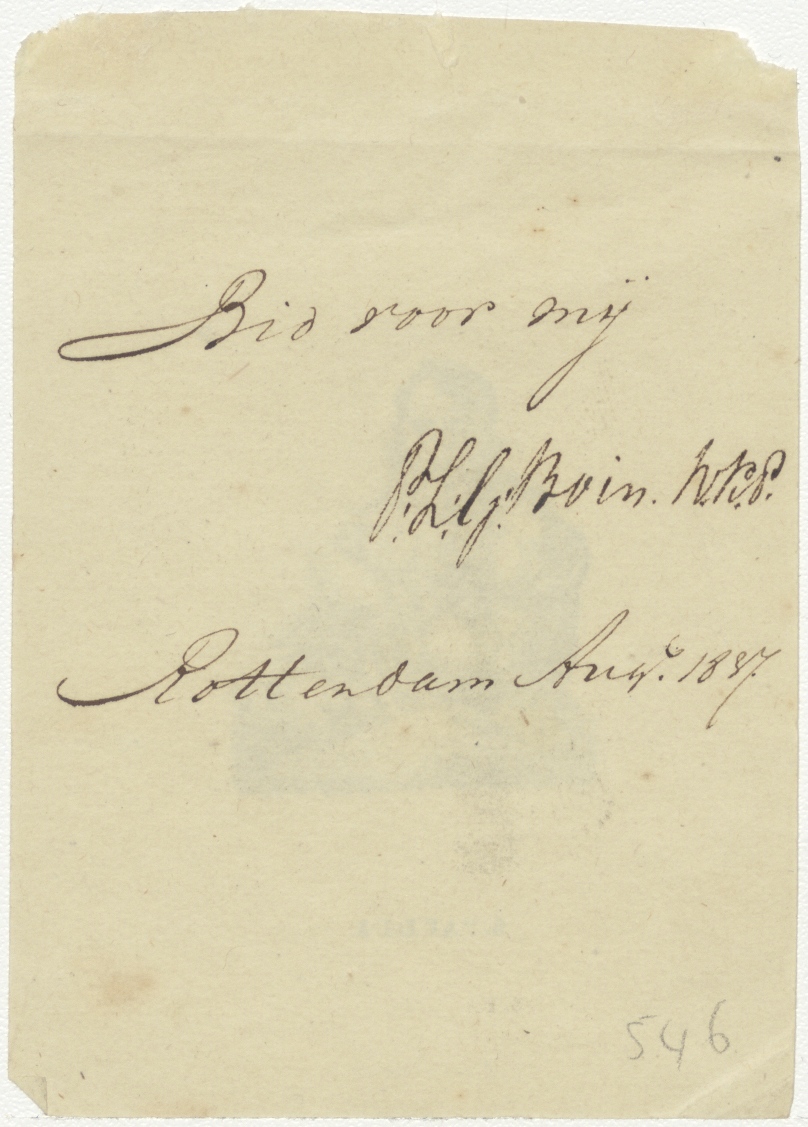 Bid voor mij
P.L.G. Boin. W.R.P.
Rottendam Augs. 1837.
546